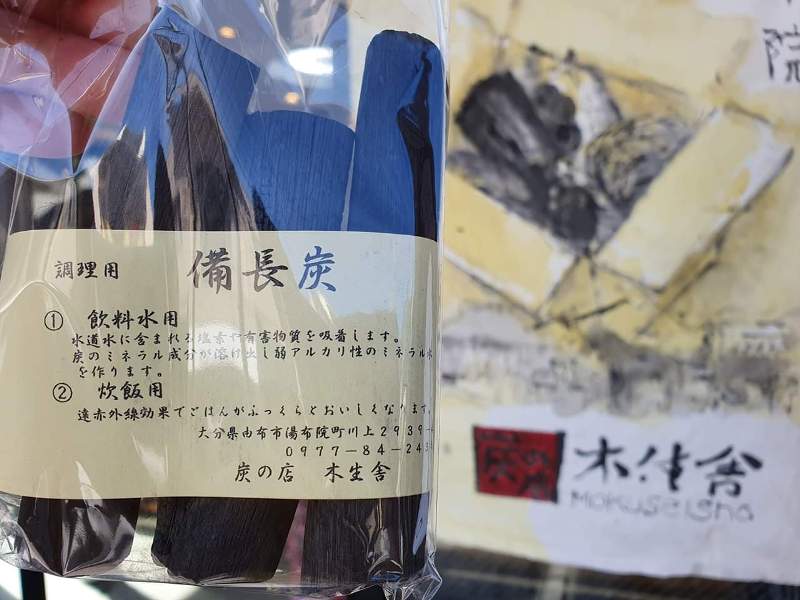 調理用 備長炭
① 飲料水用
水道水に含まれる塩素や有害物質を吸着します。
炭のミネラル成分が溶け出し弱アルカリ性のミネラル水
を作ります。
② 炊飯用
遠赤外線効果でごはんがふっくらとおいしくなります。
大分県由布市湯布院町川上2939-
0977-84-24
炭の店 木生舎
院
炭の店
木生舎
MOKUSEISHA